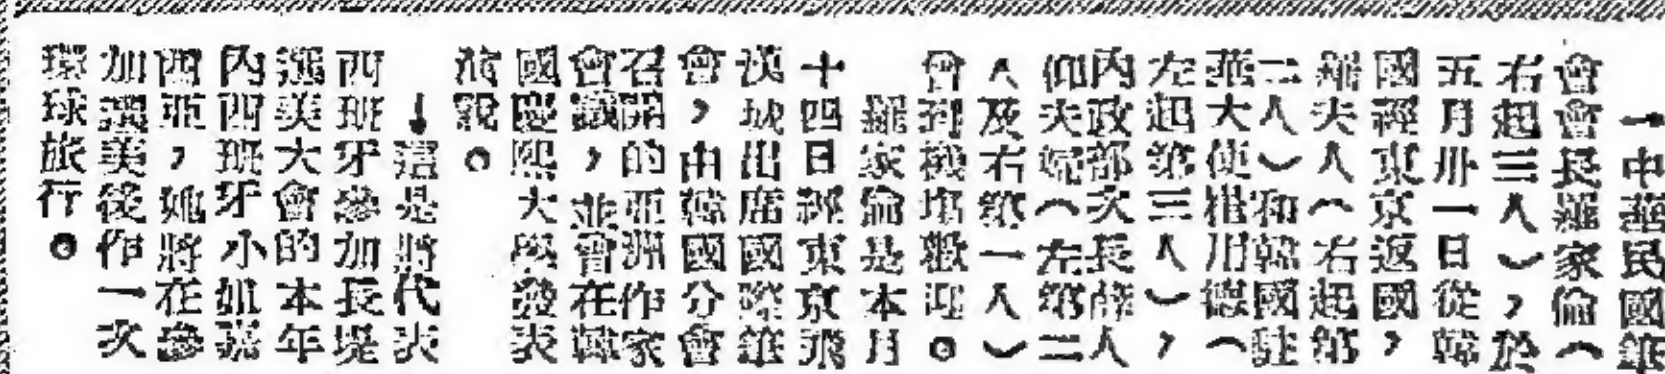 一中華民國筆
會會長羅家倫︵
右起三人︶，於
五月卅一日從韓
國經東京返國，
羅夫人︵右起第
二人︶和韓國駐
華大使崔用德︵
左起第三人︶，
內政部次長薛人
仰夫婦︵左第二
人及右第一人︶
會到機場歡迎。
羅家倫是本月
十四日經東京飛
漢城出席國際筆
會，由韓國分會
召開的亞洲作家
會議，並會在韓
國慶熙大學發表
演說。
↓這是將代表
西班牙參加長堤
選美大會的本年
內西班牙小姐嘉
西亞，她將在參
加選美後作一次
環球旅行。